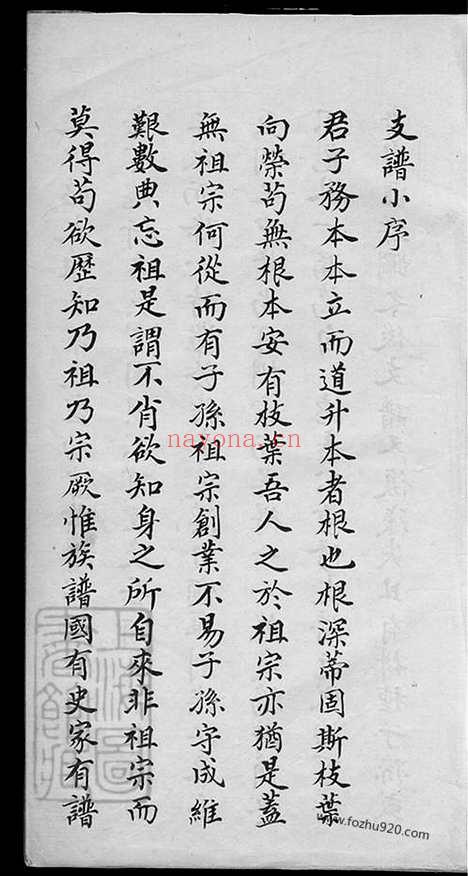 支譜小序
君子務本本立而道升本者根也根深蒂固斯枝葉
向榮苟無根本安有枝葉吾人之於祖宗亦猶是蓋
無祖宗何從而有子孫祖宗創業不易子孫守成維
艱數典忘祖是謂不肖欲知身之所自來非祖宗而
莫得苟欲歷知乃祖乃宗厥惟族譜國有史家有譜
nayona.cn
www.fozhu920.com